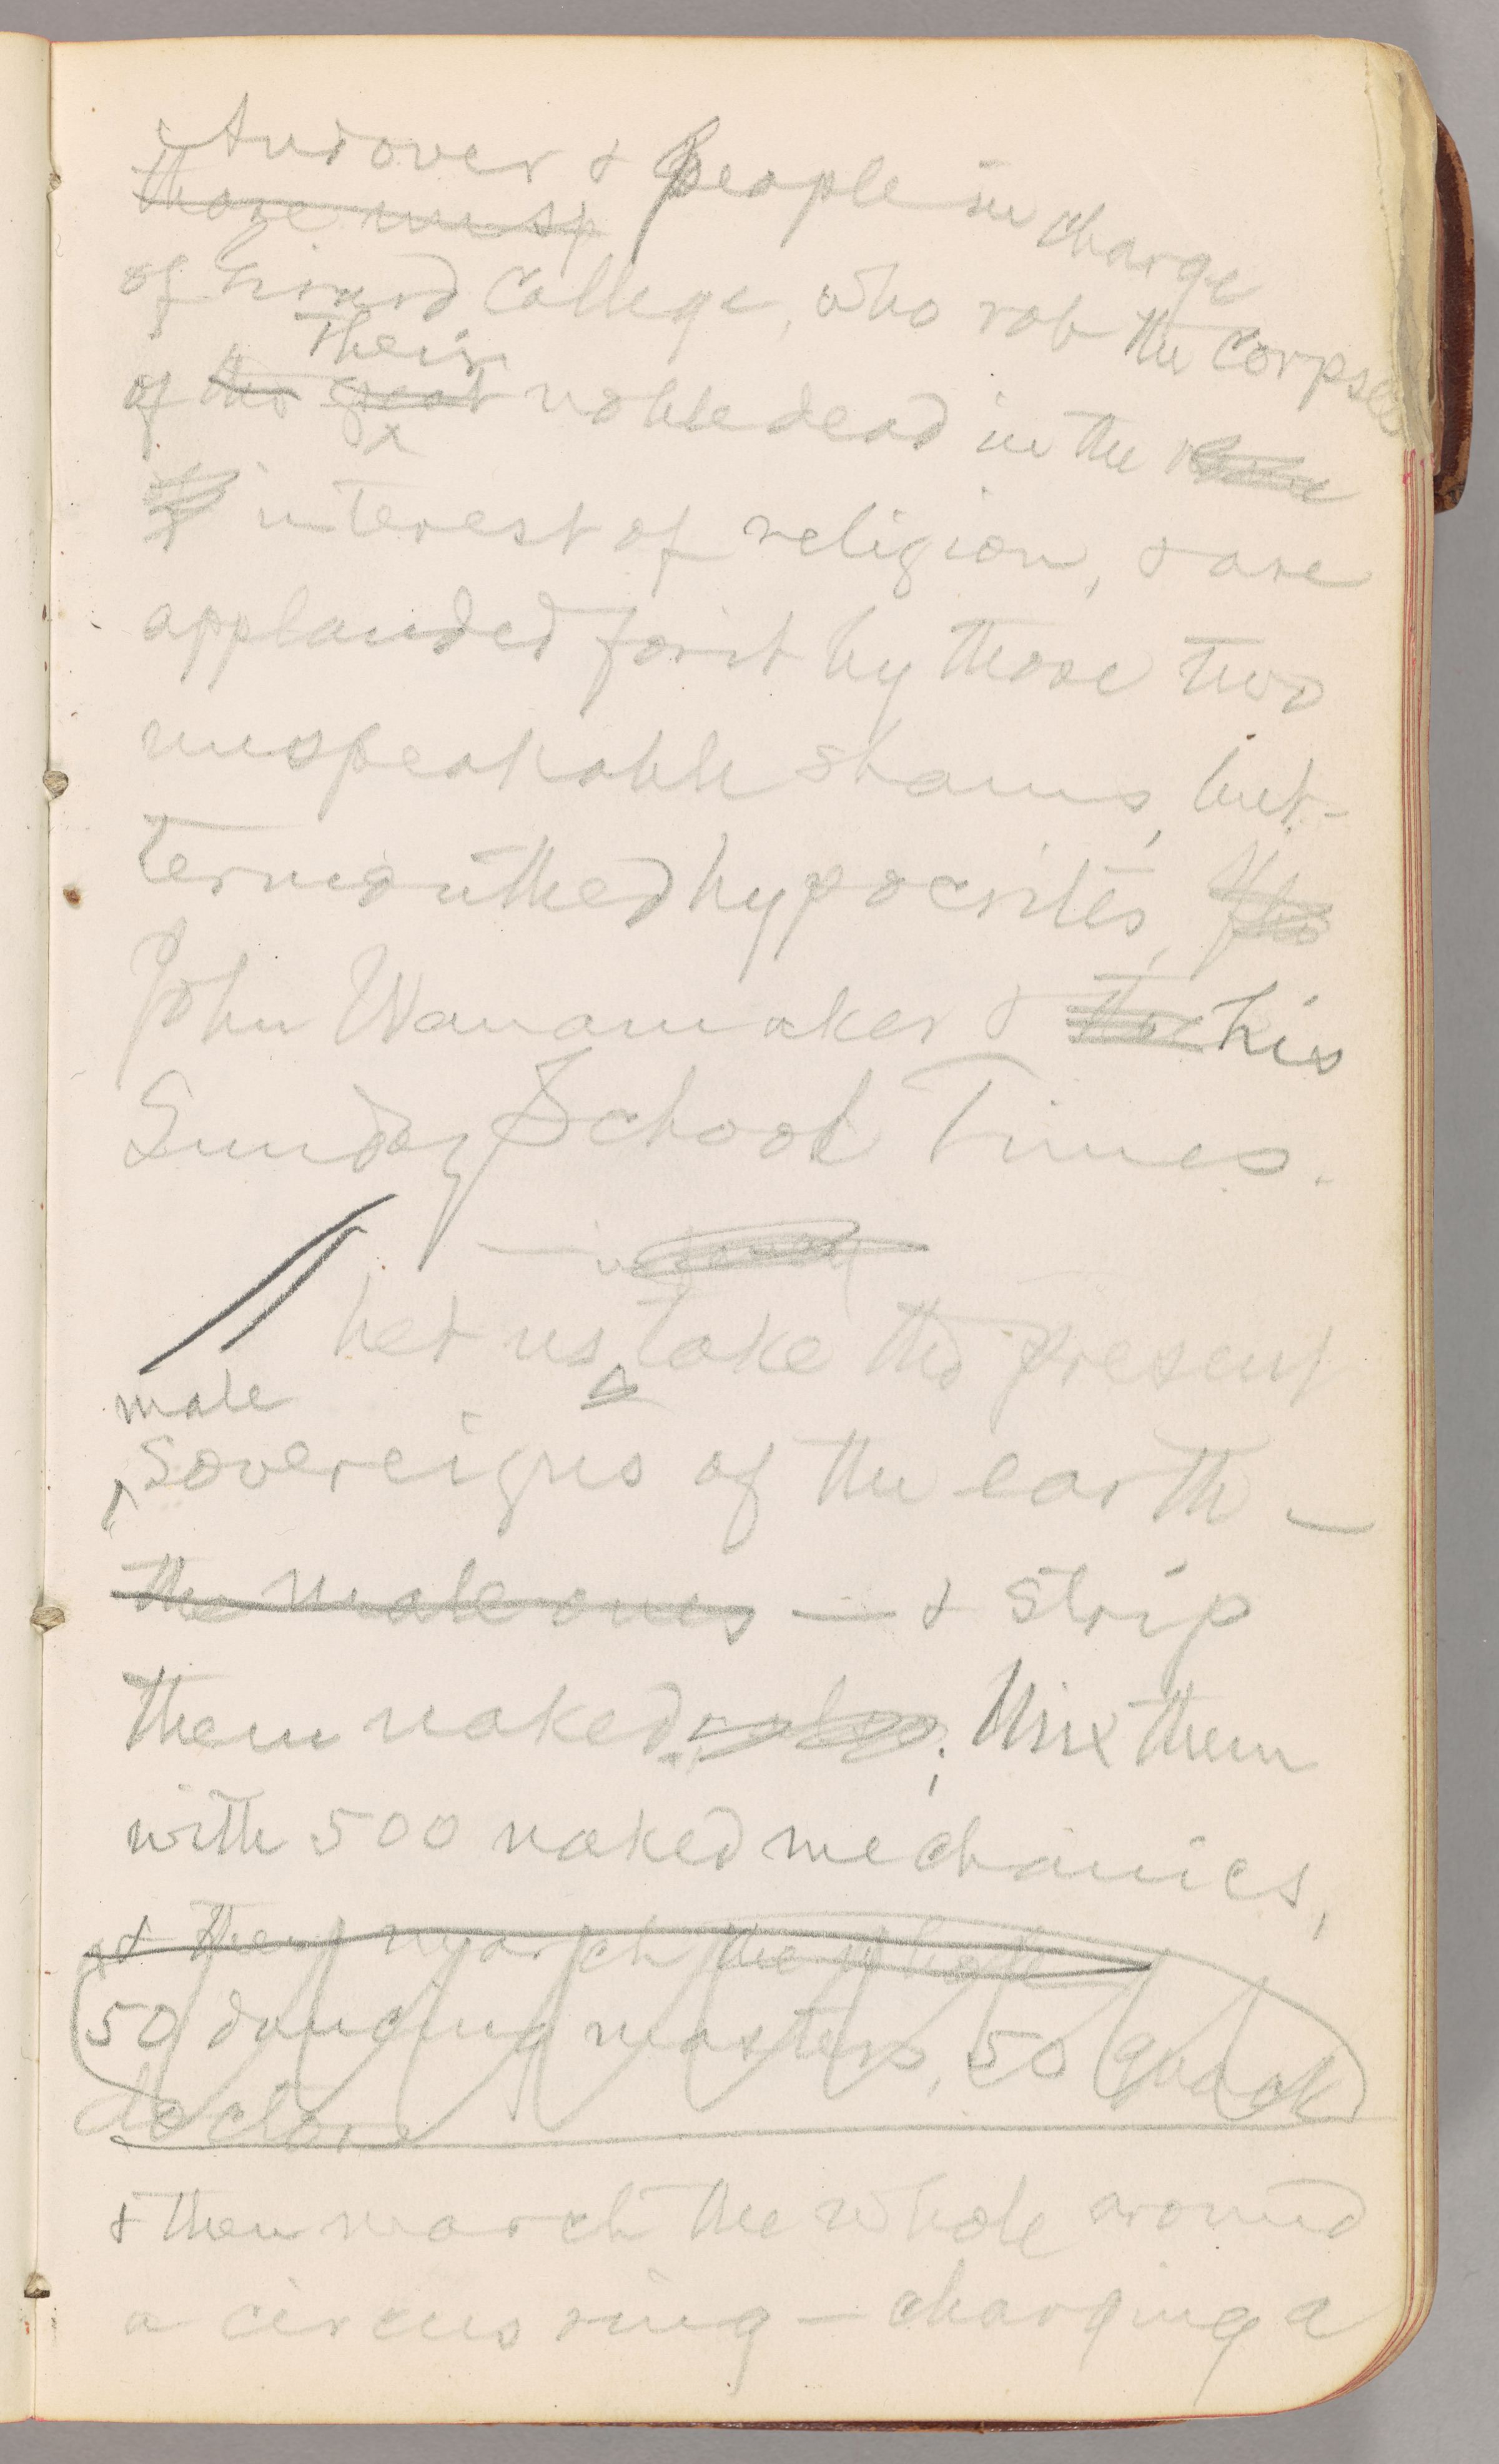 Andover & people in charge
those
of Girard College, who rob the corpses
their
of the great noble dead in the
of interest of religion, & are
applauded for it by those two
unspeakable shams, but-
termouthed hypocrites, the
John Wanamaker & the his
Sunday School Times.
Let us take the present
male
sovereigns of the earth —
the male ones — & strip
them naked; Mix them
with 500 naked mechanics,
& then march the whole
50 dancing masters, 50 quack
doctors
& then march the whole around
a circus ring — charging a